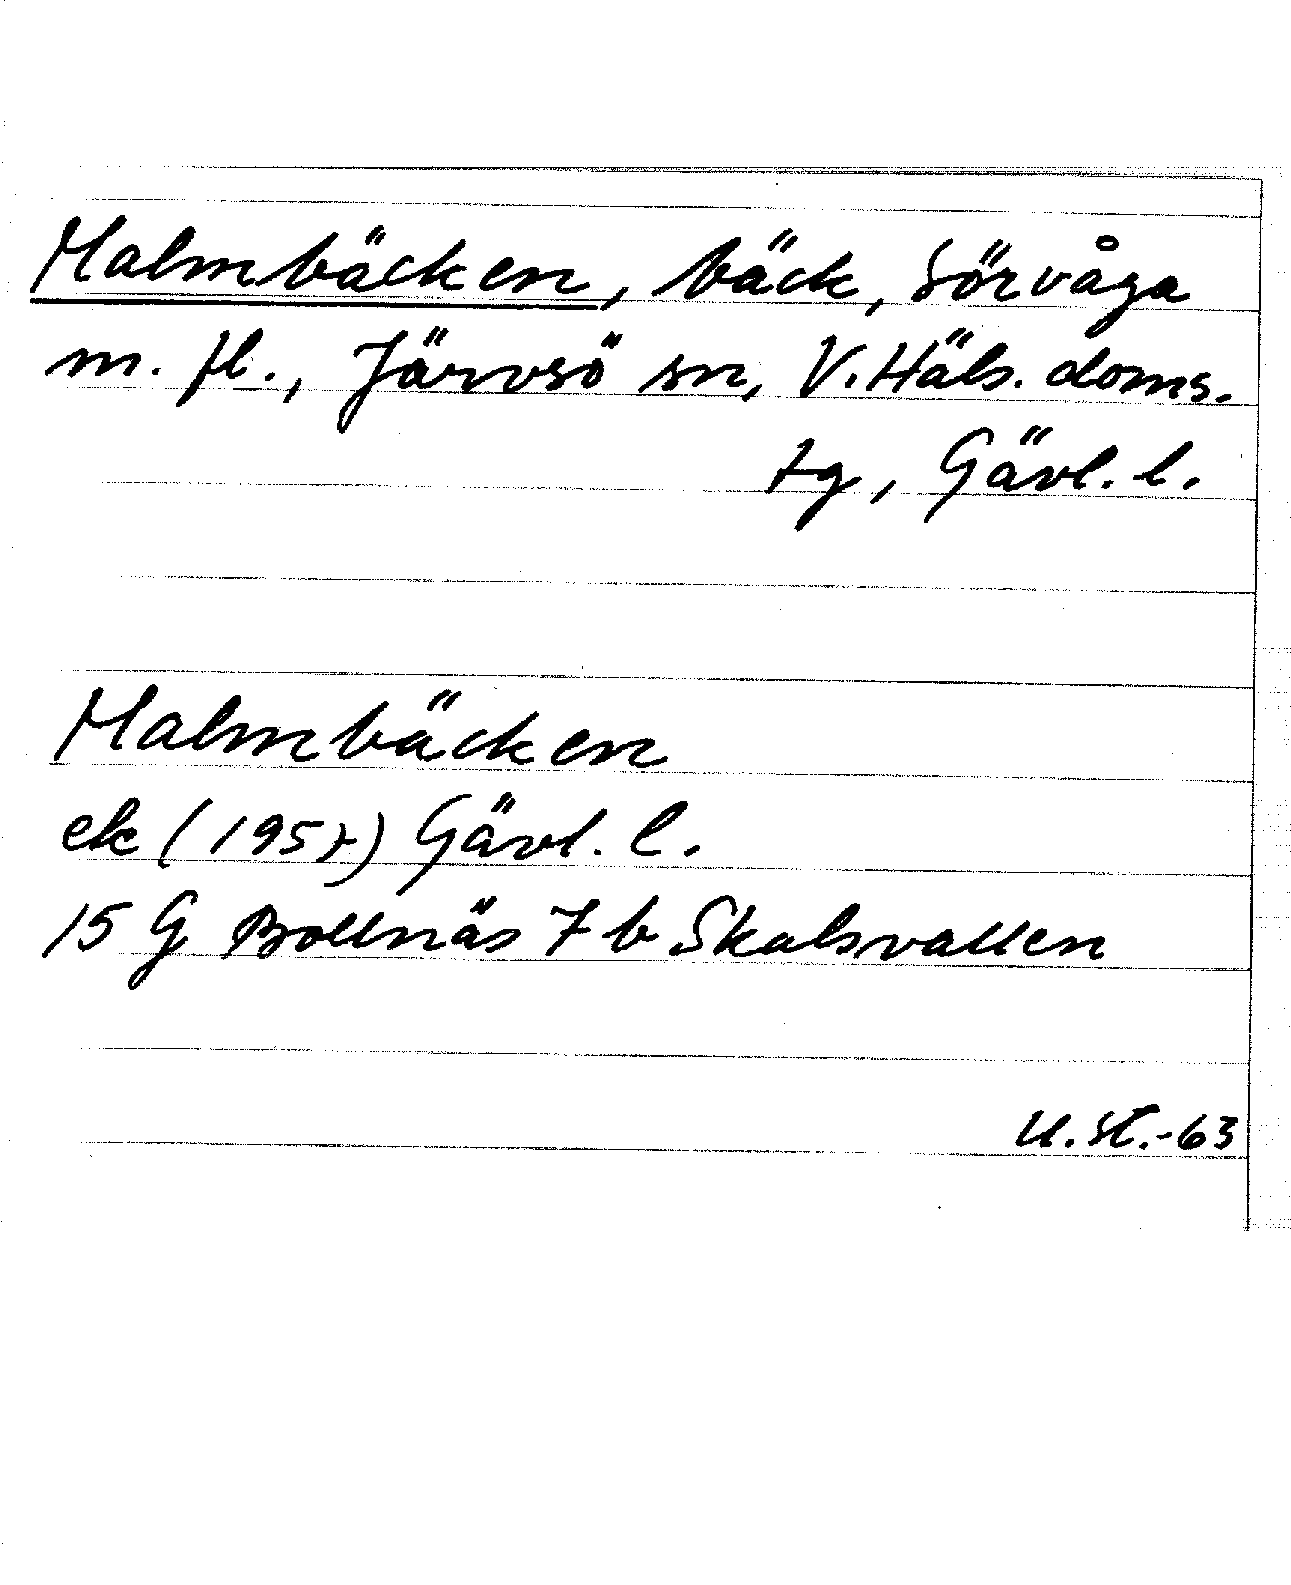 Malmbäcken, bäck, Sörvåga
m. fl., Järvsö sn, V. Häls. doms.
tg, Gävl. l.
Malmbäcken
ek (1957) Gävl. l.
15 G Bollnäs 7 b Skalsvallen
U. St.-63